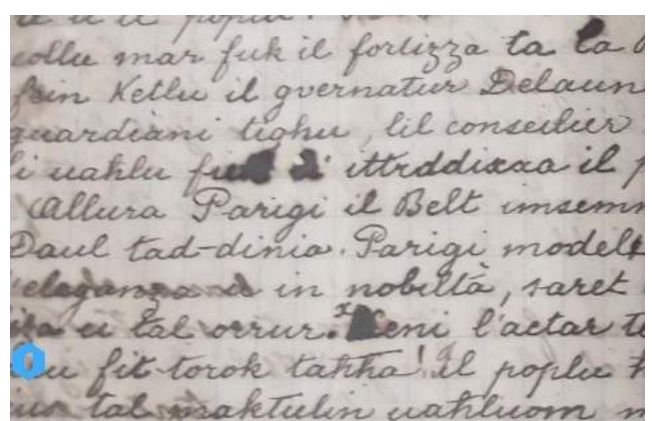 il poplu
collu mar fuk il fortizza ta la
fein Ketlu il gvernatur Delaun
guardiani tighu, lil conseilier
li uahlu ittrddixxa il
Callura Parigi il Belt imsemm
Daul tad-dinia. Parigi modell
eleganza u in nobiltà, saret
u tal orrur. xeni l'actar
fit-torok tahha! Il poplu
tal maktulin uahluom